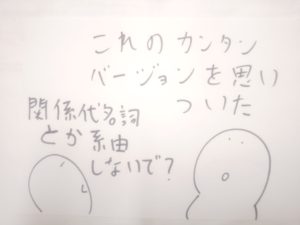 これのカンタン
バージョンを思い
ついた
関係代名詞
とか系由
しないで?